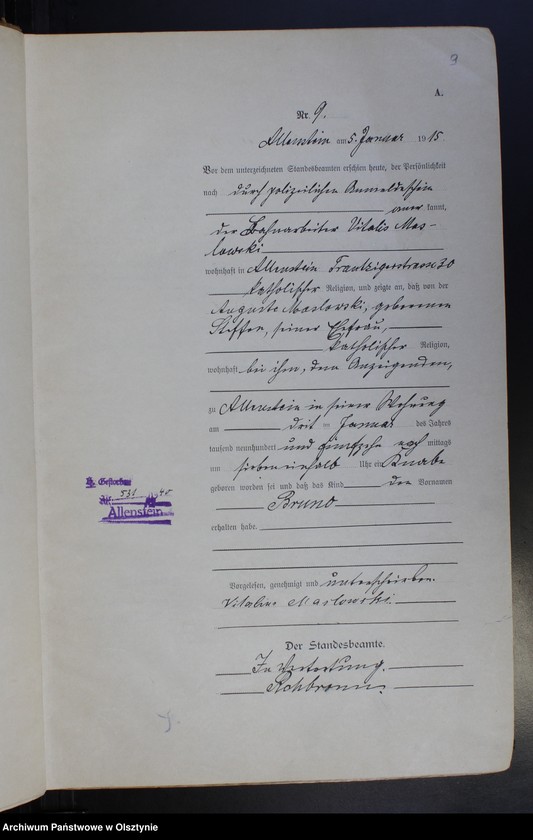 9
A.
Nr. 9.
Allenstein am 5. Januar 1915.
Vor dem unterzeichneten Standesbeamten erschien heute, der Persönlichkeit
nach durch polizeilichen Anmeldeschein
aner kannt,
der Bahnarbeiter Vitalis Mas-
lowski
wohnhaft in Allenstein 30
katholischer Religion, und zeigte an, daß von der
Auguste Maslowski, geborenen
Steffen, seiner Ehefrau,
katholischer Religion,
wohnhaft bei ihm, dem Anzeigenden,
zu Allenstein in seiner Wohnung
am drit- ten Januar des Jahres
tausend neunhundert und fünfzehn nach mittags
um sieben einhalb Uhr ein Knabe
geboren worden sei und daß das Kind den Vornamen
Bruno
erhalten habe.
H. Gestorben
531 40
Allenstein
Vorgelesen, genehmigt und unterschrieben.
Vitalis Maslowski.
Der Standesbeamte.
In Vertretung.
Archiwum Państwowe w Olsztynie